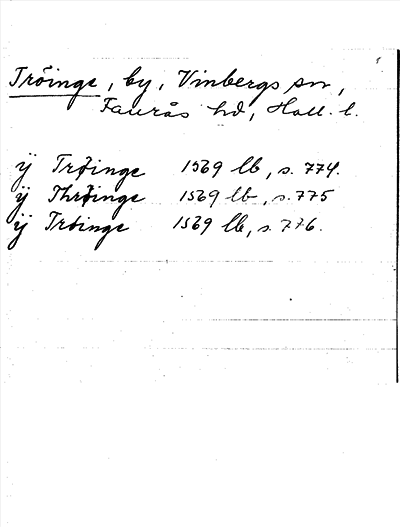 Tröinge, by, Vinbergs sn,
Faurås hd, Hall. l.
ÿ Trøinge 1569 lb, s. 774.
ÿ Thrøinge 1569 lb, s. 775
ÿ Tröinge 1569 lb, s. 776.